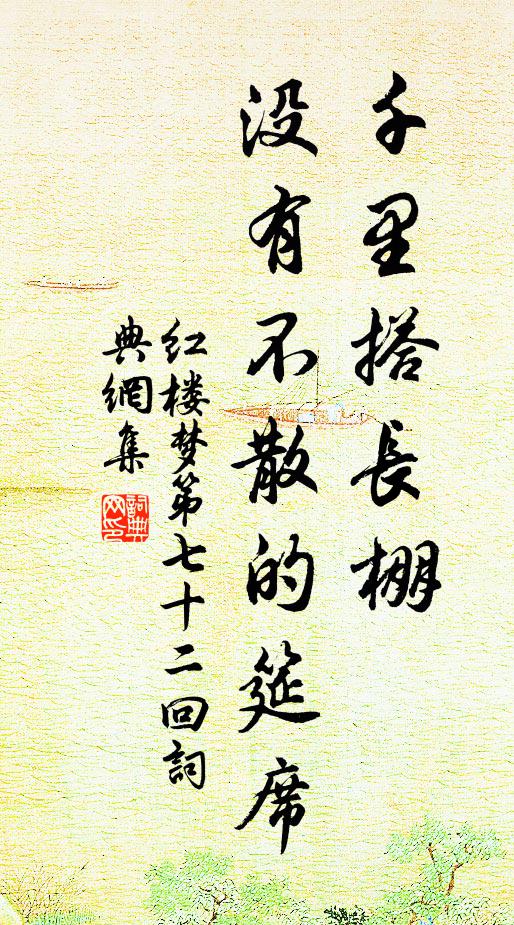 千里搭長棚
没有不散的筵席
红楼梦第七十二回詞
典網集
詞典
网印